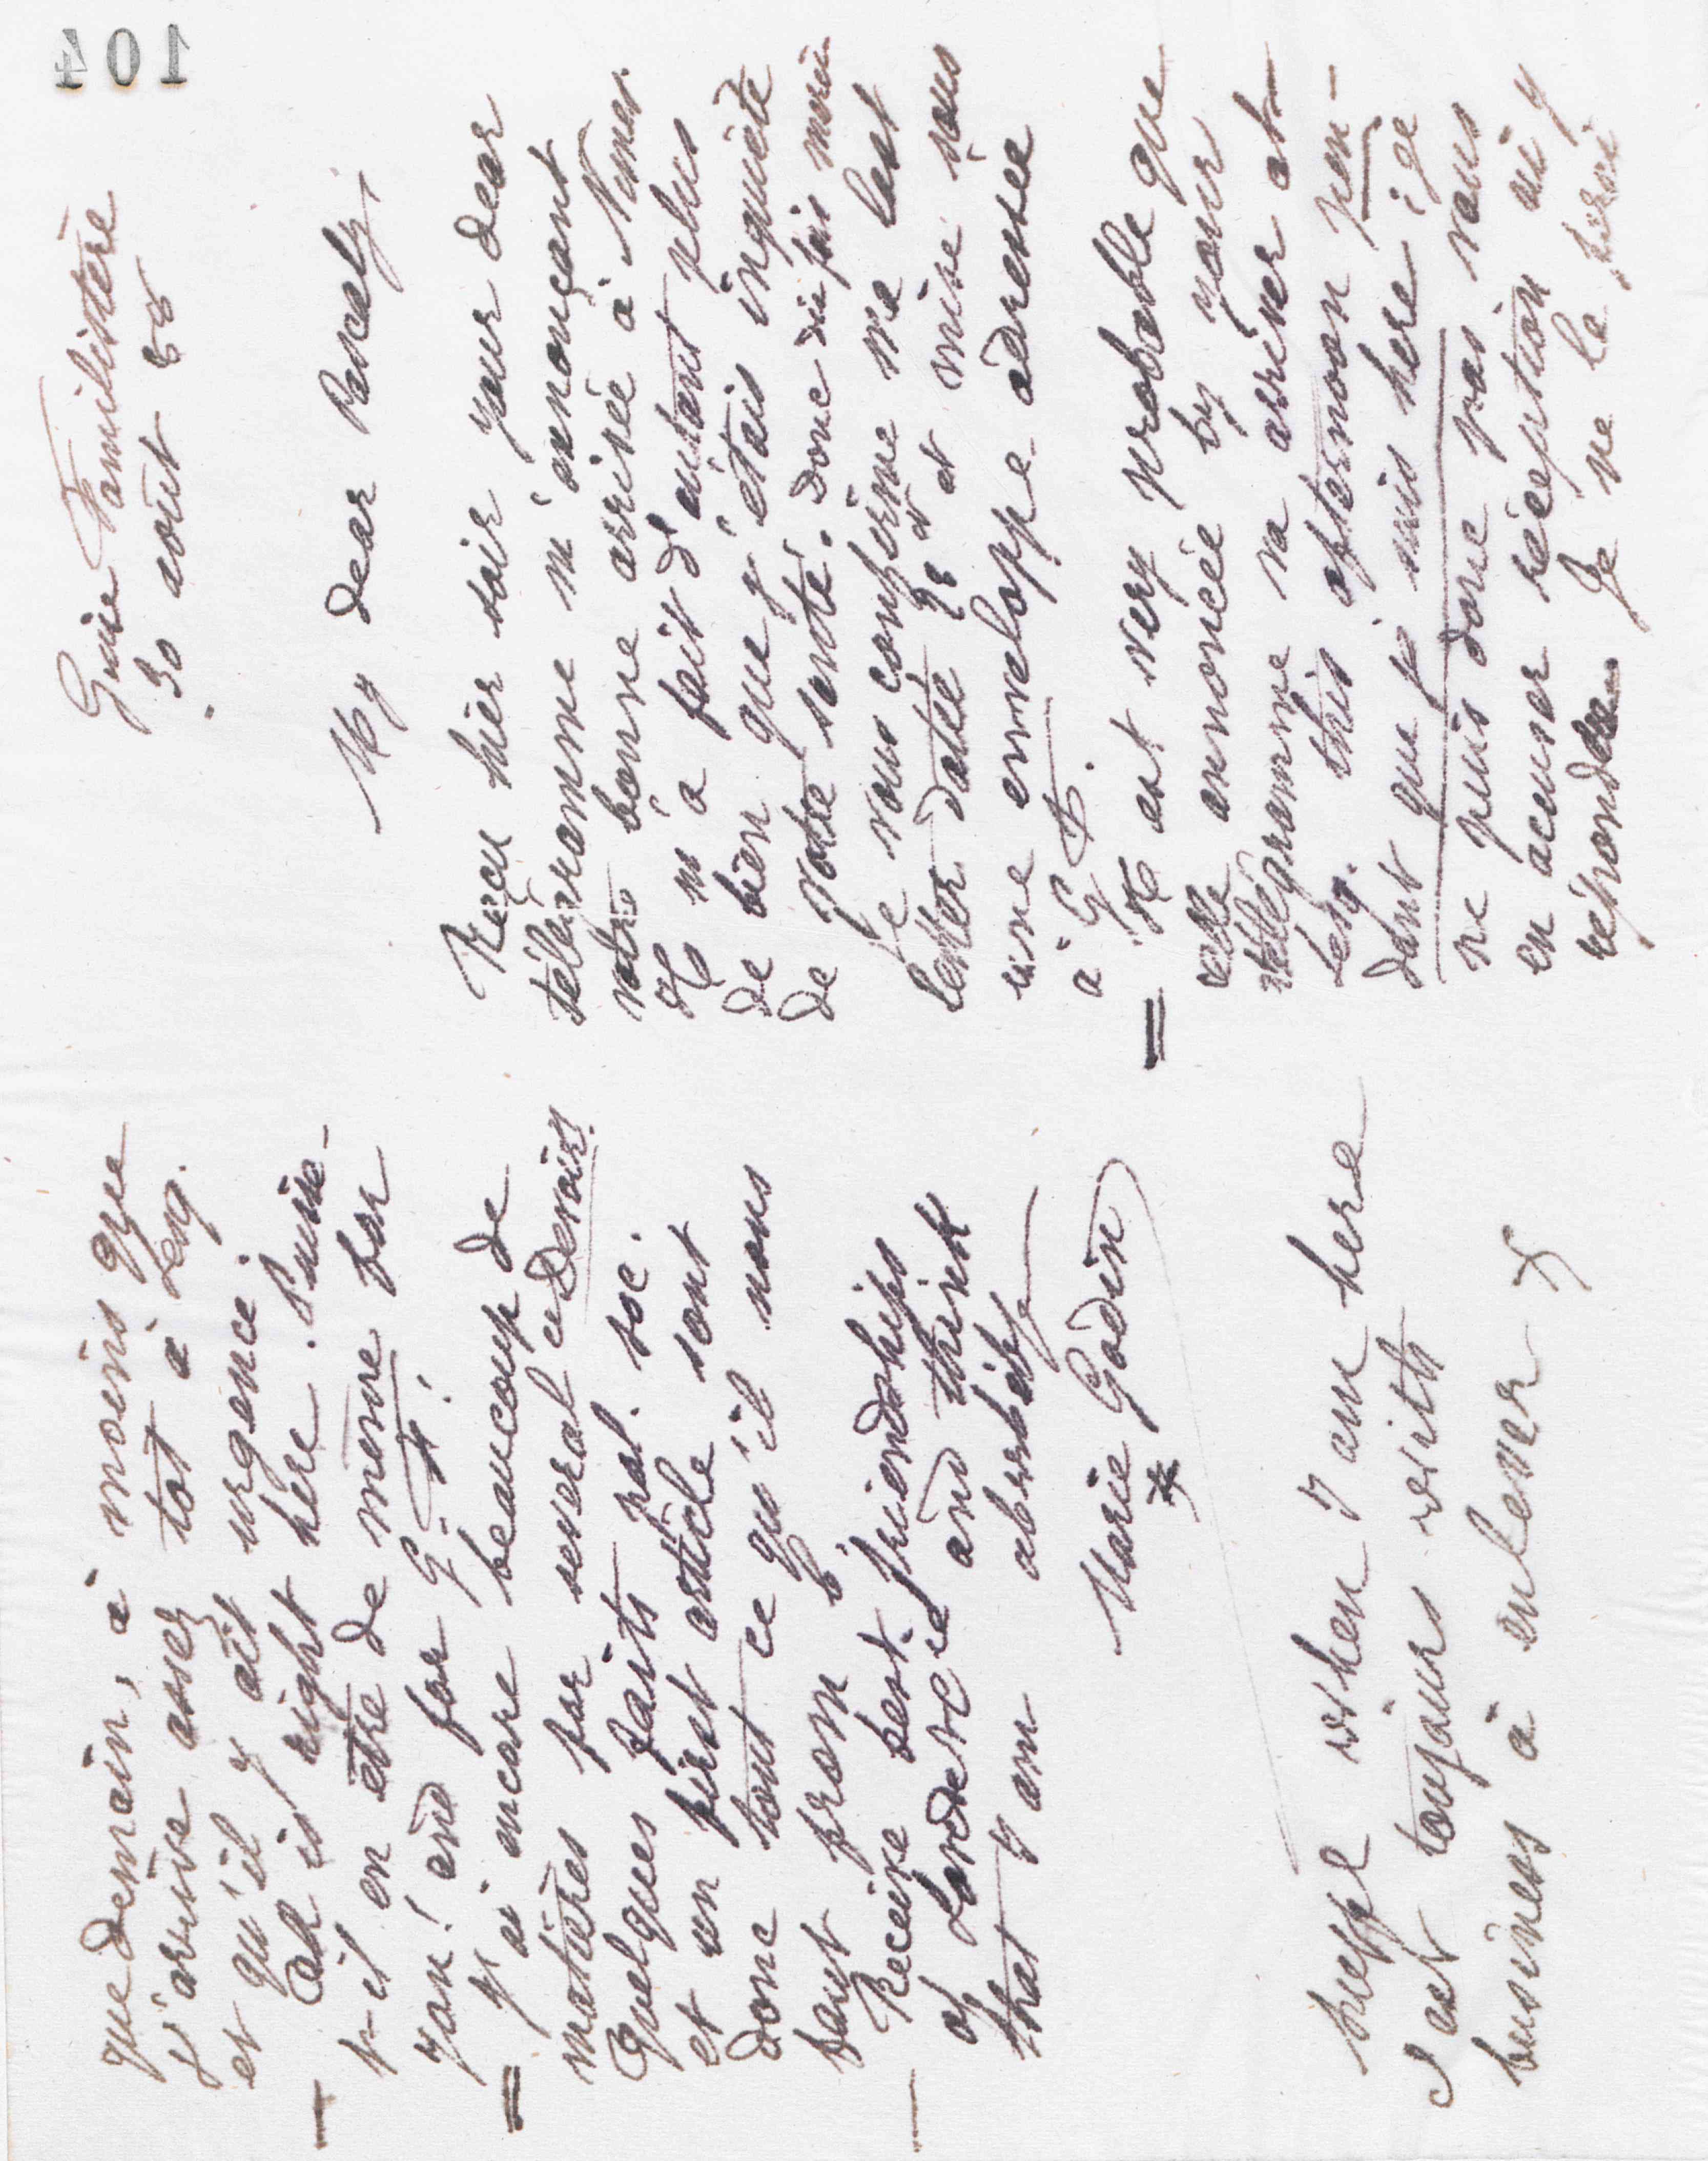 104
Guise Familistère
30 août 88
My dear Pascaly,
Reçu hier soir your dear
télégramme m'annonçant
votre bonne arrivée à Nîmes.
Il m'a fait d'autant plus
de bien que j'étais inquiète
de votre santé. Donc dix fois merci
Je vous confirme ma last
letter datée 28 et mise sous
une enveloppe adressée
à G. F.
= Il est very probable que
celle annoncée by your
télégramme va arriver at
Lesq. this afternoon pen-
dant que je suis here ; je
ne puis donc pas vous
en accuser réception ni y
répondre. Je ne le ferai
que demain, à moins que
j'arrive assez tôt à Lesq.
et qu'il y ait urgence.
— All is right here. Puisse-
t-il en être de même for
you! and for G. F.!
= J'ai encore beaucoup de
matières for several ce Devoir.
Quelques faits pol. soc.
et un first article sont
donc tout ce qu'il nous
faut from b.
— Receive best friendships
of Landeve and think
that I am
Marie Godin
when I am here
I est toujours with
business à enlever